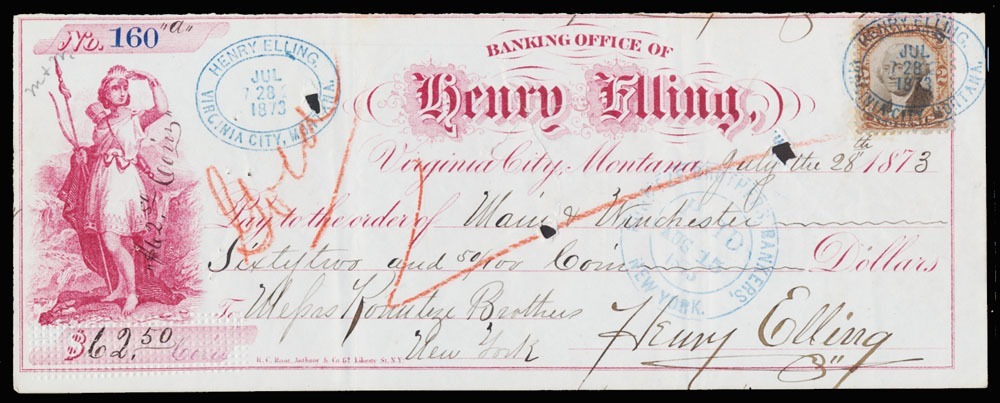 No. 160 "a"
BANKING OFFICE OF
Henry Elling,
HENRY ELLING.
JUL
28
1873
VIRGINIA CITY, MONTANA.
HENRY ELLING.
JUL
28
1873
VIRGINIA CITY, MONTANA.
Gold
Virginia City, Montana, July the 28th 1873
Pay to the order of Main & Winchester
Sixtytwo and 50/00 Coin Dollars
To Messrs Kountze Brothers
New York
Henry Elling
$62.50 Coin
$62.50 Coin
BANKERS,
PAID
AUG
NEW YORK.
R. C. Root, Anthony & Co 62 Liberty St. N.Y.